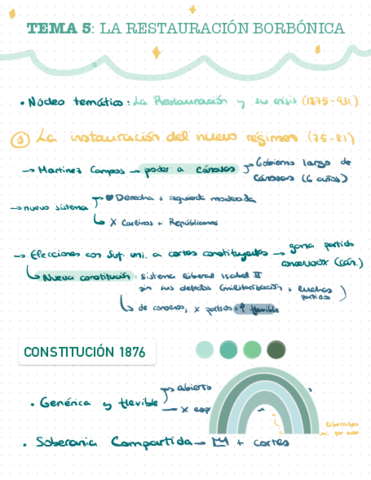 TEMA 5: LA RESTAURACIÓN BORBÓNICA
• Núcleo temático: La Restauración y su crisis (1875-931)
① La instauración del nuevo régimen (75-81)
→ Martínez Campos → poder a Cánovas → Gobierno largo de
Cánovas (6 años)
→ nuevo sistema → ♥ Derecha + izquierda moderada
→ X Carlinos + Republicanos
→ Elecciones con Suf. uni. a cortes constituyentes → gana partido
conservador (Cán.)
→ Nueva constitución: sistema liberal Isabel II
sin sus defectos (militarización + luchas
partidos)
→ de consenso, X partido = flexible
CONSTITUCIÓN 1876
• Genérica y flexible → abierto
→ X esp
• Soberanía Compartida → + cortes